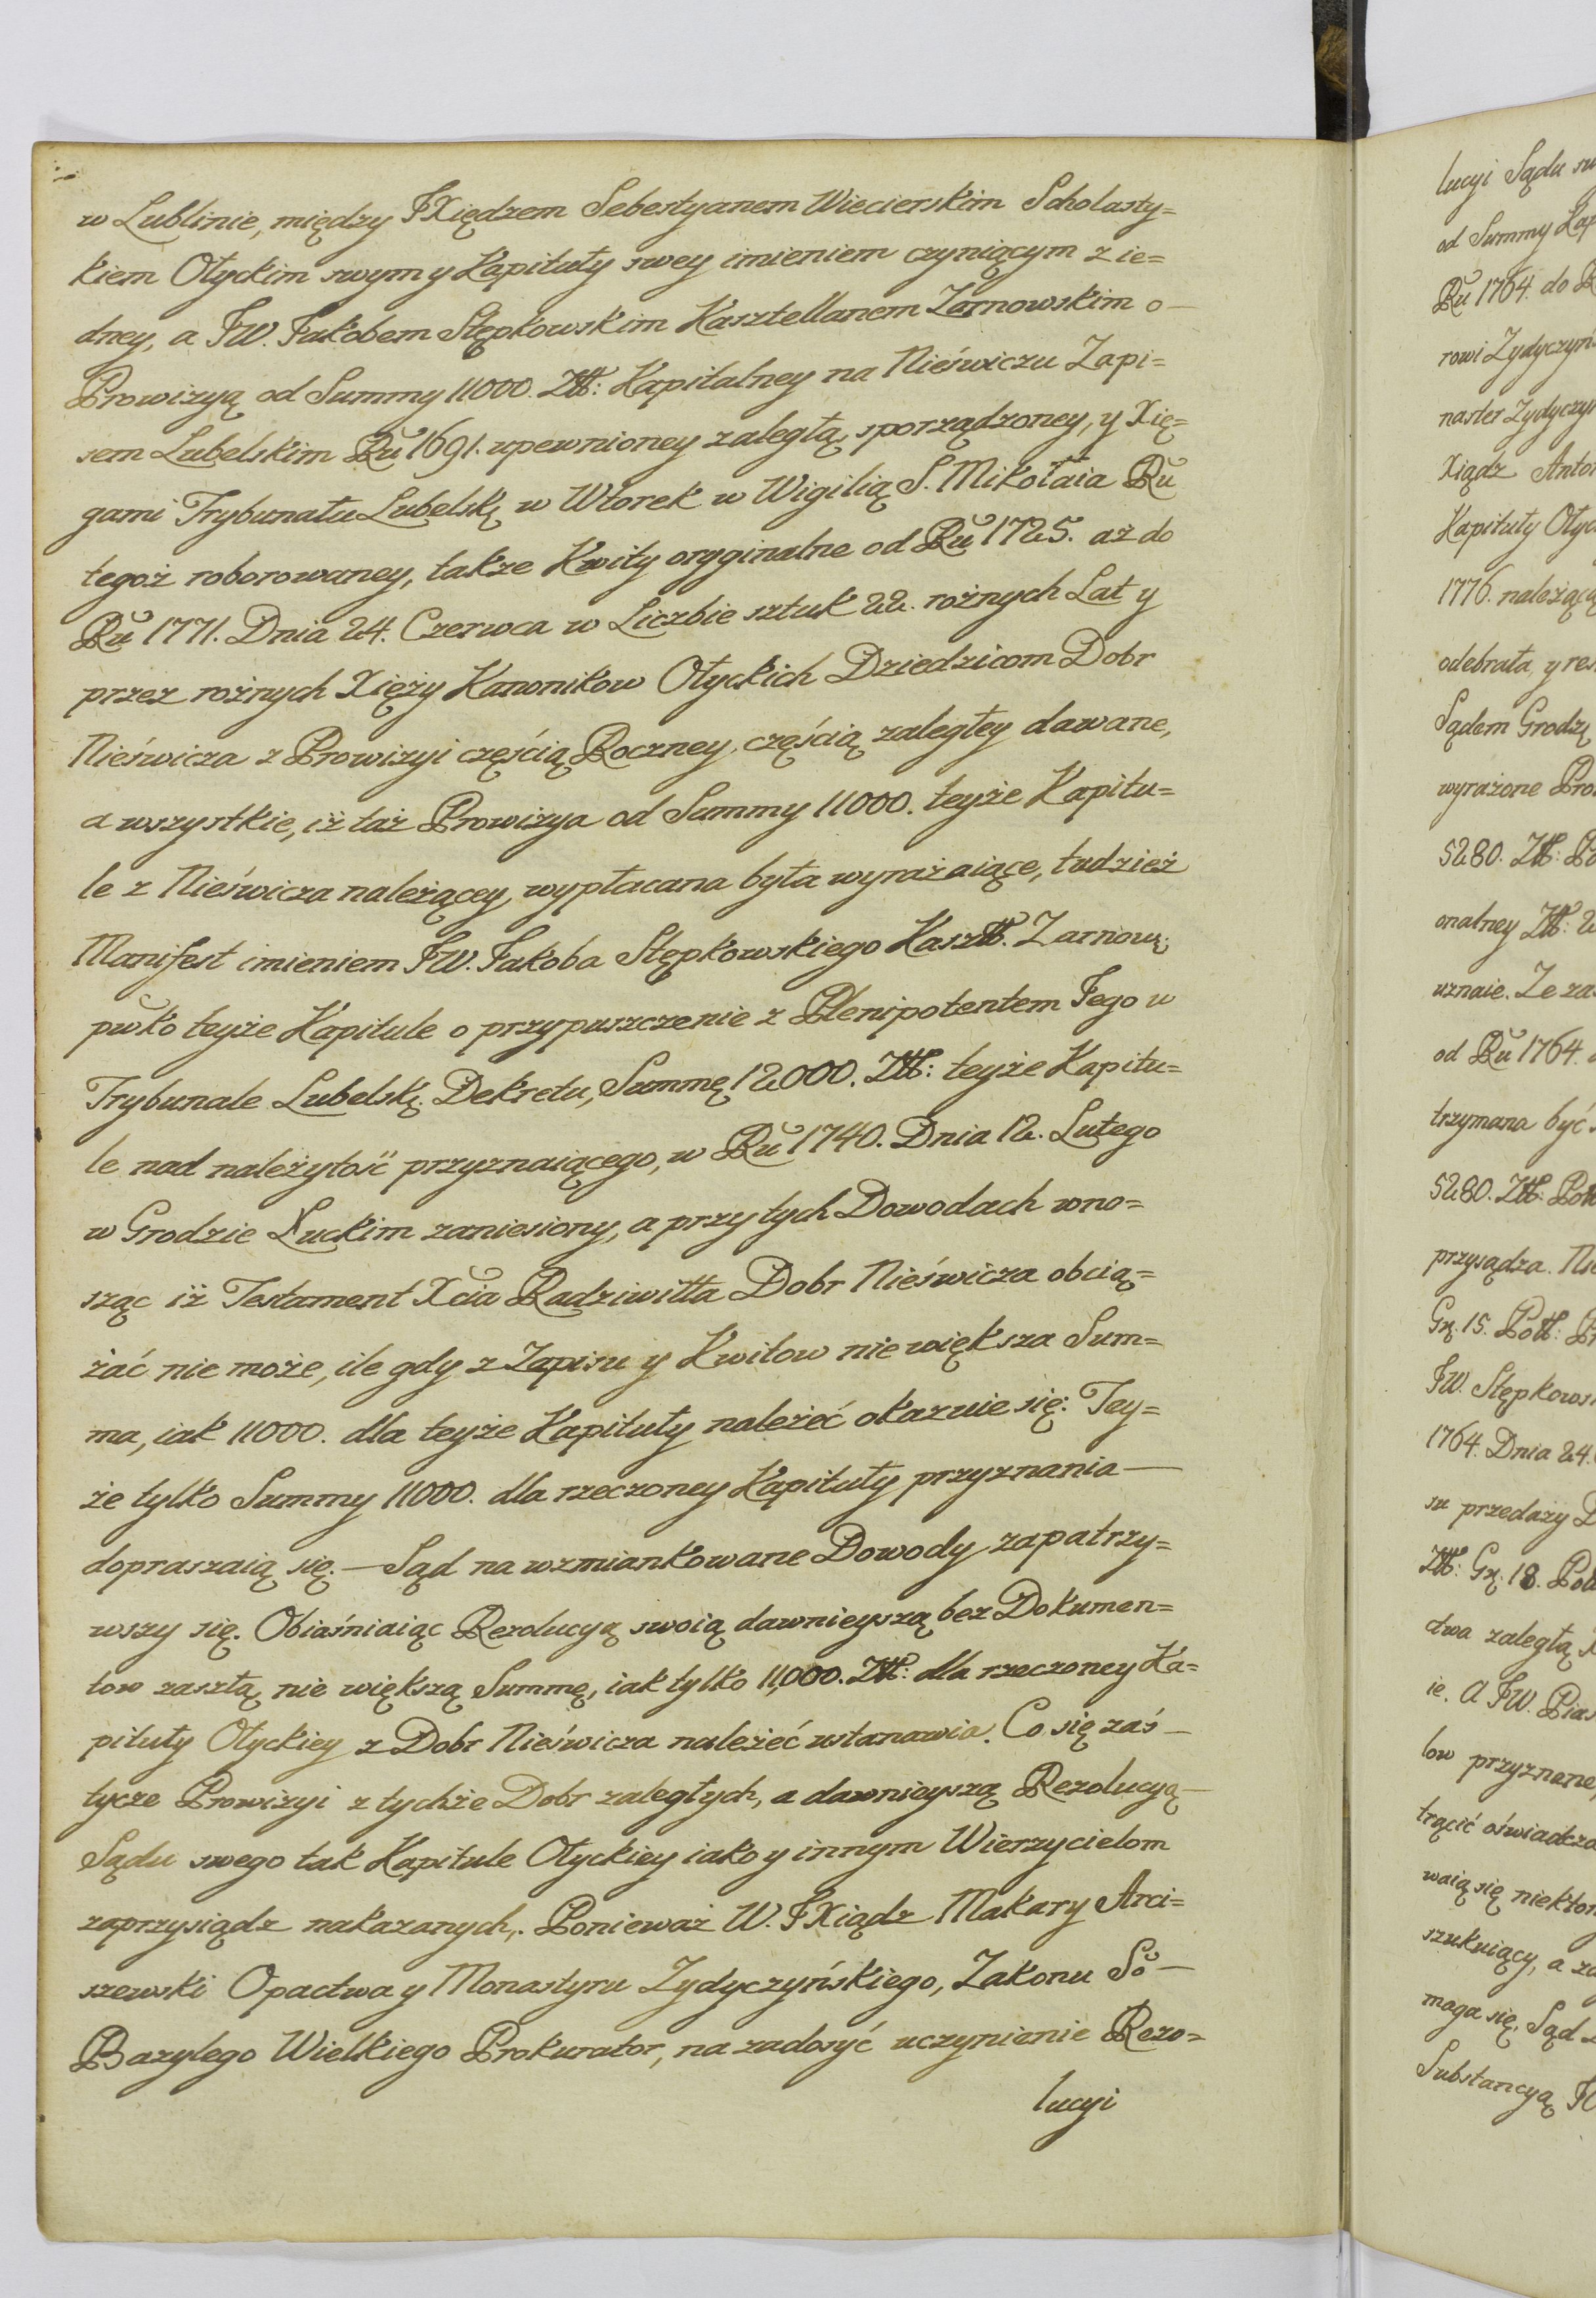 w Lublinie, między JXiędzem Sebestyanem Wiecierskim Scholasty=
kiem Ołyckim swym y Kapituły swey imieniem czyniącym z ie=
dney, a JW. Jakobem Stępkowskim Kasztellanem Zarnowskim o—
Prowizyą od Summy 11000. Złł: Kapitalney na Nieświczu Zapi=
sem Lubelskim Ru 1691. upewnioney zaległą, sporządzoney, y Xię=
gami Trybunału Lubelskị w Wtorek w Wigilią S. Mikołaia Ru
tegoż roborowaney, także Kwity oryginalne od Ru 1725. aż do
Ru 1771. Dnia 24. Czerwca w Liczbie sztuk 22. rożnych Lat y
przez rożnych Xięży Kanonikow Ołyckich Dziedzicom Dobr
Nieświcza z Prowizyi częścią Roczney, częścią zaległey dawane,
a wszystkie, iż taż Prowizya od Summy 11000. teyże Kapitu=
le z Nieświcza należącey, wypłacana była wyrażaiące, tudzież
Manifest imieniem JW. Jakoba Stępkowskiego Kasztł. Zarnowị
pwko teyże Kapitule o przypuszczenie z Plenipotentem Jego w
Trybunale Lubelskị. Dekretu, Summę 12000. Złł: teyże Kapitu=
le nad należytość przyznaiącego, w Ru 1740. Dnia 12. Lutego
w Grodzie Łuckim zaniesiony, a przy tych Dowodach wno=
sząc iż Testament Xcia Radziwiłła Dobr Nieświcza obcią=
żać nie może, ile gdy z Zapisu y Kwitow nie większa Sum=
ma, iak 11000. dla teyże Kapituły należeć okazuie się: Tey=
że tylko Summy 11000. dla rzeczoney Kapituły przyznania—
dopraszaią się.—Sąd na wzmiankowane Dowody zapatrzy=
wszy się. Obiaśniaiąc Rezolucyą swoią dawnieyszą bez Dokumen=
tow zaszłą, nie większą Summę, iak tylko 11,000. Złł: dla rzeczoney Ka=
pituły Ołyckiey z Dobr Nieświcza należeć ustanawia. Co się zaś—
tycze Prowizyi z tychże Dobr zaległych, a dawnieyszą Rezolucyą—
Sądu swego tak Kapitule Ołyckiey iako y innym Wierzycielom
zaprzysiądz nakazanych,. Ponieważ W. JXiądz Makary Arci=
szewski Opactwa y Monastyru Zydyczyńskiego, Zakonu So—
Bazylego Wielkiego Prokurator, na zadosyć uczynienie Rezo=
lucyi
lucyi Sądu
od Summy Kap
Ru 1764. do
rowi Zydyczyń
naster Zydyczy
Xiądz Anto
Kapituły Ołyc
1776. należąc
odebrała, y
Sądem Grodzị
wyrażone Pro
5280. Złł:
onalney Złł:
uznaie. Ze za
od Ru 1764.
trzymana być
5280. Złł:
przysądza. Ni
Gr. 15.
JW. Stępkows
1764. Dnia 24.
su przedaży
Złł: Gr. 18.
dwa zaległą
ie. A JW. Pias
low przyznane,
trącić oświadcza
waią się niektor
szukuiący, a za
maga się. Sąd
Substancyą